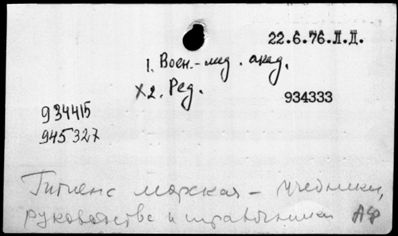 22.6.76.Л.Д.
1. Воен.-мед. акад.
х2. Ред.
934333
934415
945327
Гигиена морская - учебники,
руководства и справочники АФ